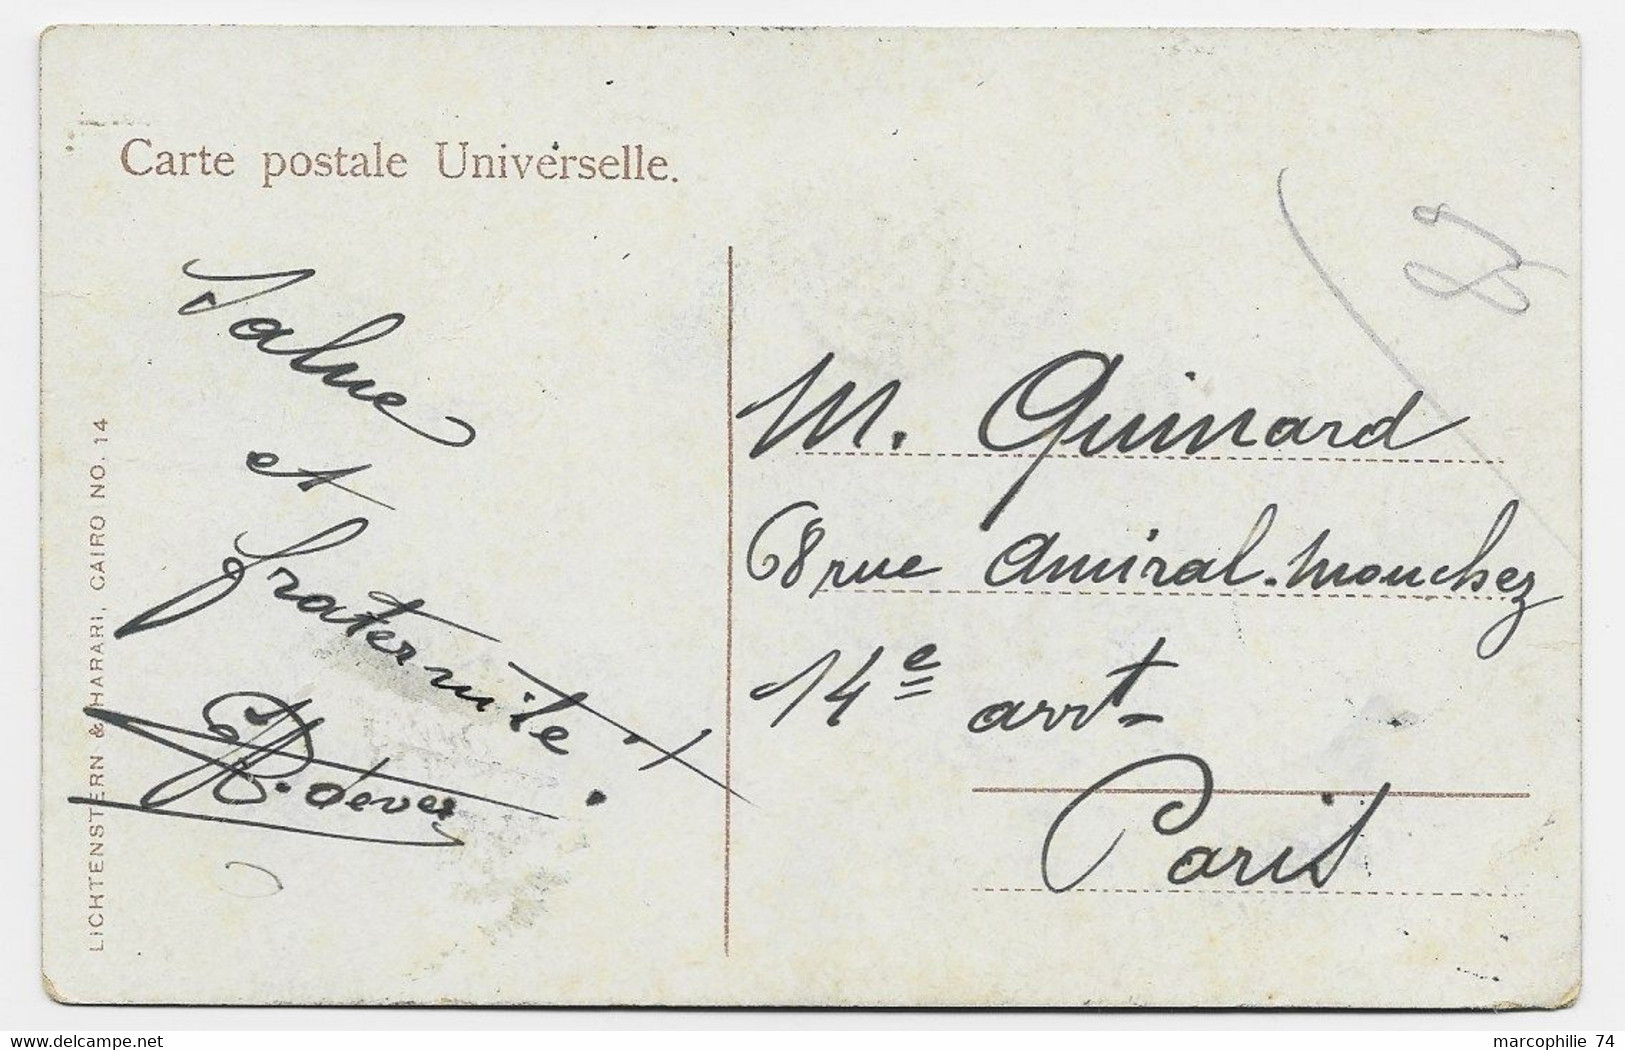 Carte postale Universelle.
Salue
et
fraternité.
LICHTENSTERN & HARARI, CAIRO NO. 14
M. Guinard
68 rue Amiral-Mouchez
14e arrt
Paris
marcophilie 74